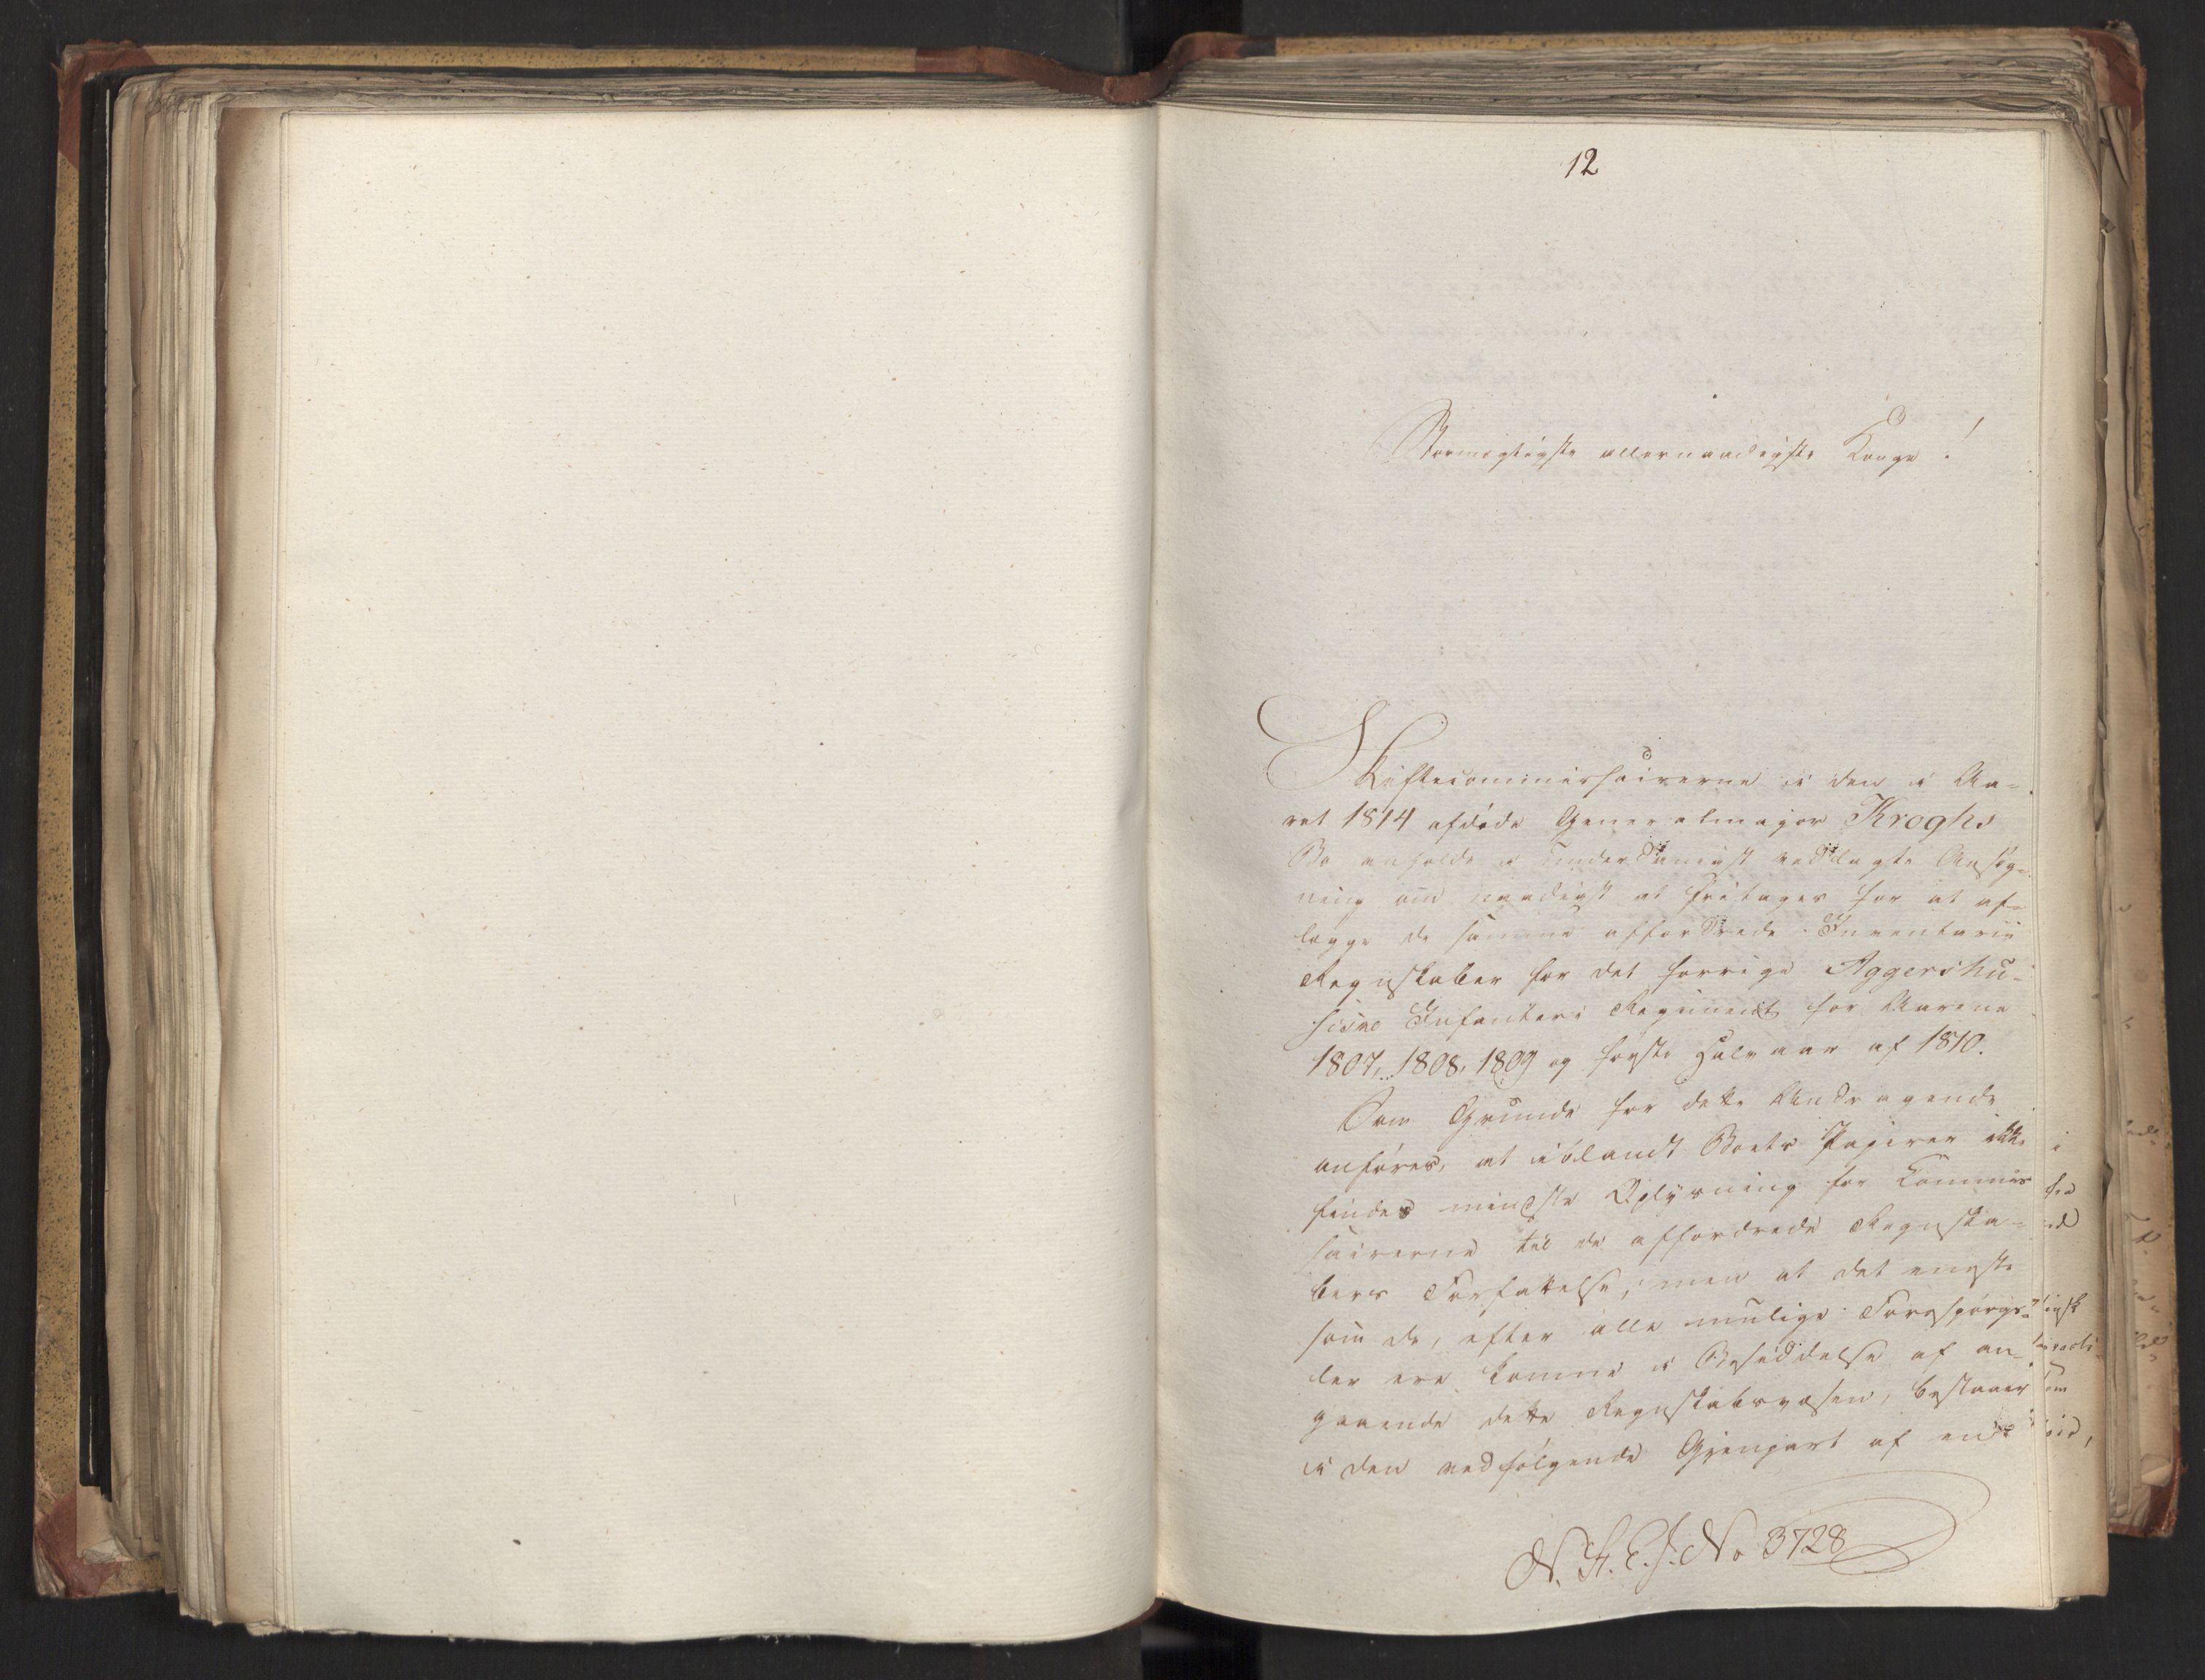 12
Stormægtigste allernaadigste Konge!
Skiftecommissairerne i den i Aa-
ret 1814 afdöde Generalmajor Kroghs
Bo anholde i underdanigst vedlagte Ansög-
ning om naadigst at fritages for at af-
lægge de samme affordrede Inventarii
Regnskaber for det forrige Aggershu-
siske Infanteri Regiment for Aarene
1807, 1808, 1809 og förste Halvaar af 1810.
Som Grunde for dette Andragende
anföres, at iblandt Boets Papirer ikke
findes mindste Oplysning for Commis-
sairerne til de affordrede Regnska-
bers Forfattelse, men at det eneste
som de, efter alle mulige Forespörgs-
ler ere komne i Besiddelse af an-
gaaende dette Regnskabsvæsen, bestaaer
i den vedfölgende Gjenpart af en
N. St. E. J. No 3728